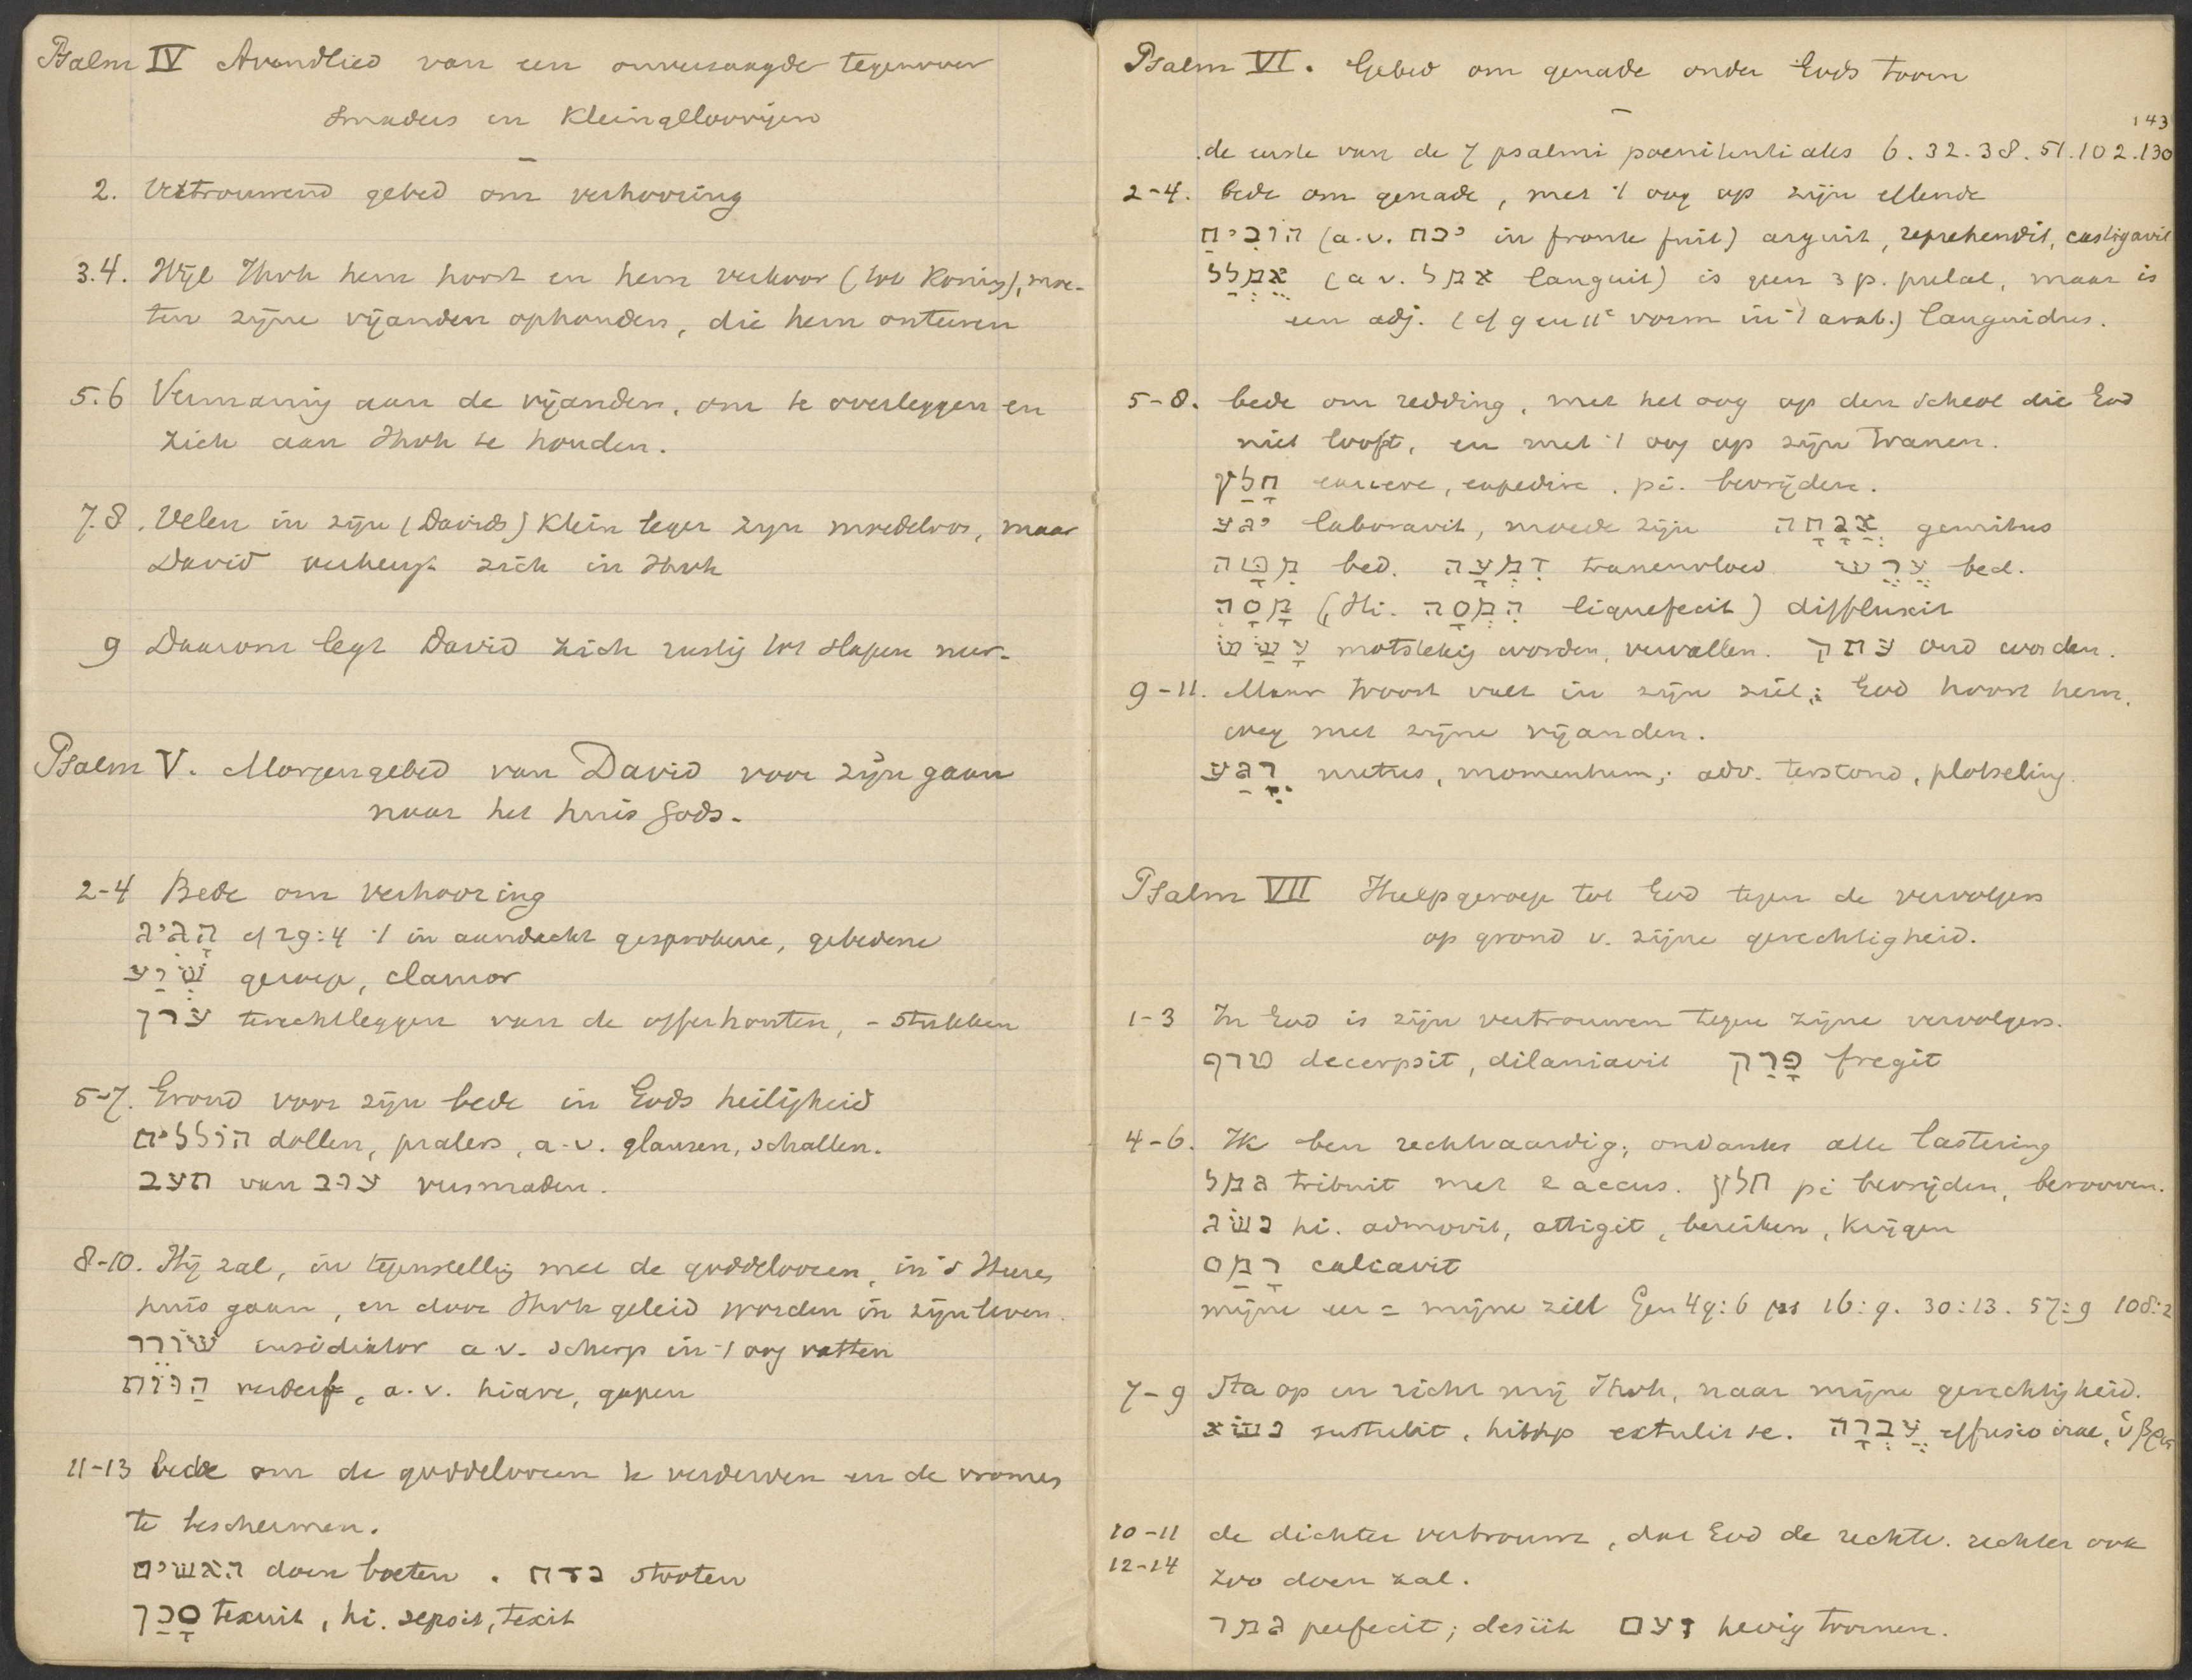 Psalm IV Avondlied van een onversaagde tegenover
smaders en kleingelloovigen
2. Vertrouwend gebed om verhooring
3.4. Wijl Jhvh hem hoort en hem verkoor (tot Koning), moe-
ten zijne vijanden ophouden, die hem onteeren
5.6 Vermaning aan de vijanden, om te overleggen en
zich aan Jhvh te houden.
7.8. Velen in zijn (Davids) klein leger zijn moedeloos, maar
David verheugt zich in Jhvh
9 Daarom legt David zich rustig tot slapen neer.
Psalm V. Morgengebed van David voor zijn gaan
naar het huis Gods.
2-4 Bede om verhooring
הָגִיג cf 39:4 't in aandacht gesprokene, gebedene
שֶׁוַע geroep, clamor
ערך terechtleggen van de offerhouten, - stukken
5-7. Grond voor zijn bede in Gods heiligheid
הוללים dollen, pralers, a.v. glanzen, schallen.
תעב van עיב versmaden.
8-10. Hij zal, in tegenstelling met de goddeloozen, in 's Heeren
huis gaan, en door Jhvh geleid worden in zijn leven.
שׁוֹרֵר insidiator a.v. scherp in 't oog vatten
הַוּוֹת verderf, a.v. hiare, gapen
11-13 bede om de goddeloozen te verderven en de vromen
te beschermen.
האשים doen boeten . נדח stooten
סָכַך texuit, hi. sepsit, texit
Psalm VI. Gebed om genade onder Gods toorn
143
de eerste van de 7 psalmi poenitentiales 6. 32. 38. 51. 102. 130
2-4. bede om genade, met 't oog op zijn ellende
הוֹכִיחַ (a.v. יכח in fronte fuit) arguit, reprehendit, castigavit
אֻמְלַל (a v. אמל languit) is geen 3 p. pulal, maar is
een adj. (cf 9 en 11e vorm in 't arab.) languidus.
5-8. bede om redding, met het oog op den scheol die God
niet looft, en met 't oog op zijn tranen.
חָלַץ exuere, expedire. pi. bevrijden.
יגע laboravit, moede zijn אֲנָחָה gemitus
מִטָּה bed. דִּמְעָה tranenvloed עֶרֶשׂ bed.
מָסָה (Hi. הִמְסָה liquefecit) diffluxit
עָשַׁשׁ motslekig worden, vervallen. עתק oud worden.
9-11. Maar troost valt in zijn ziel; God hoort hem.
weg met zijne vijanden.
רֶגַע nutus, momentum; adv. terstond, plotseling.
Psalm VII Hulpgeroep tot God tegen de vervolgers
op grond v. zijne gerechtigheid.
1-3 In God is zijn vertrouwen tegen zijne vervolgers.
טרף decerpsit, dilaniavit פָּרַק fregit
4-6. Ik ben rechtvaardig, ondanks alle lastering
גמל tribuit met 2 accus. חלץ pi bevrijden, berooven.
נשׂג hi. admovit, attigit, bereiken, krijgen
רָמַס calcavit
mijne eer = mijne ziel Gen 49:6 ps 16:9. 30:13. 57:9 108:2
7-9 Sta op en richt mij Jhvh, naar mijne gerechtigheid.
נשׂא sustulit, hithp extulit se. עֶבְרָה effusio irae, ὕβρις
10-11 de dichter vertrouwt, dat God de rechtv. rechter ook
12-14 zoo doen zal.
גמר perfecit; desiit זעם hevig toornen.